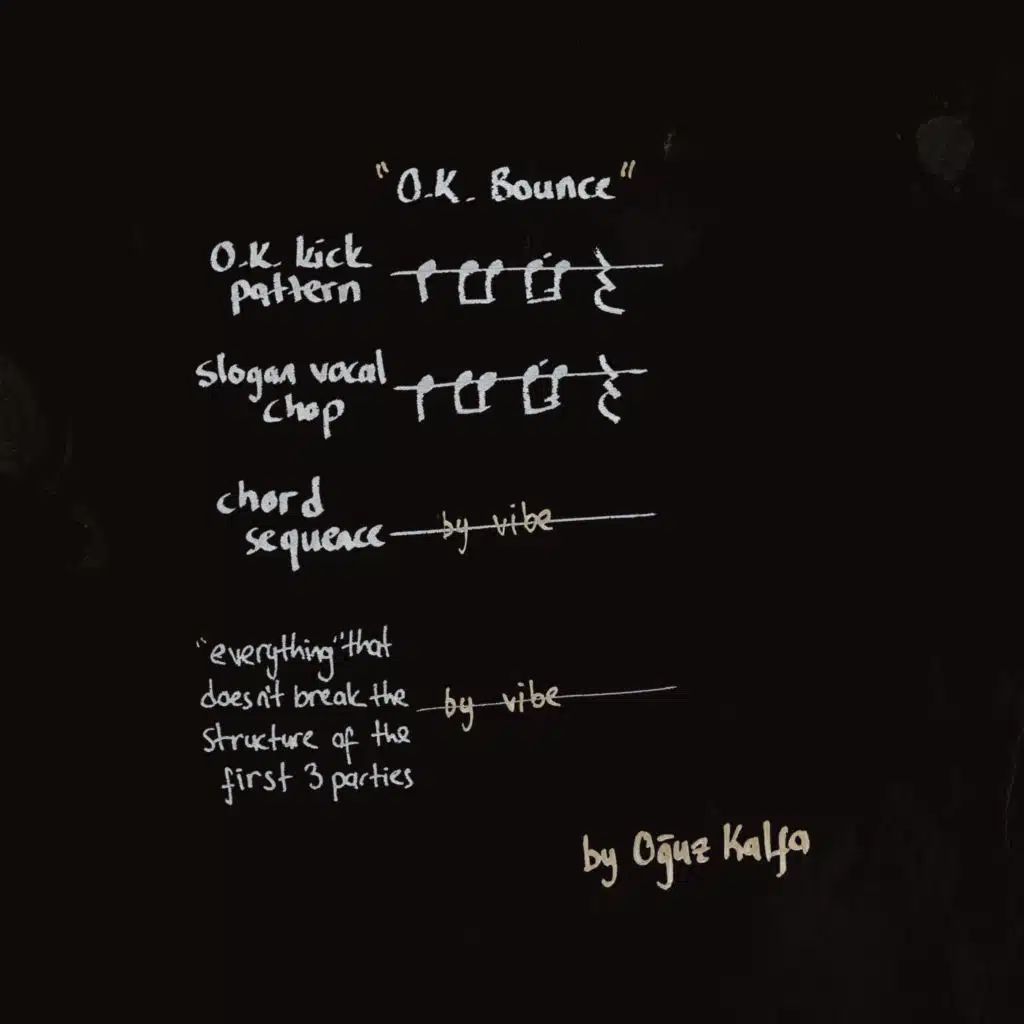 "O.K. Bounce"
O.K. kick
pattern
slogan vocal
chop
chord
sequence
by vibe
"everything" that
doesn't break the
structure of the
first 3 parties
by vibe
by Oğuz Kalfa